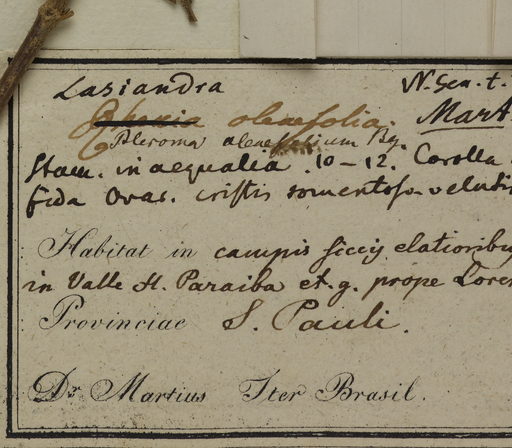 Lasiandra N. Gen. t.
oleaefolia. Mart
Pleroma oleaefolium
Stam. inaequalia. 10–12. Corolla
fida Ovar. tomentoso-veluti
Habitat in campis siccis elatioribus
in Valle fl. Paraiba et. g. prope Loren
Provinciae S. Pauli.
Dr. Martius Iter Brasil.